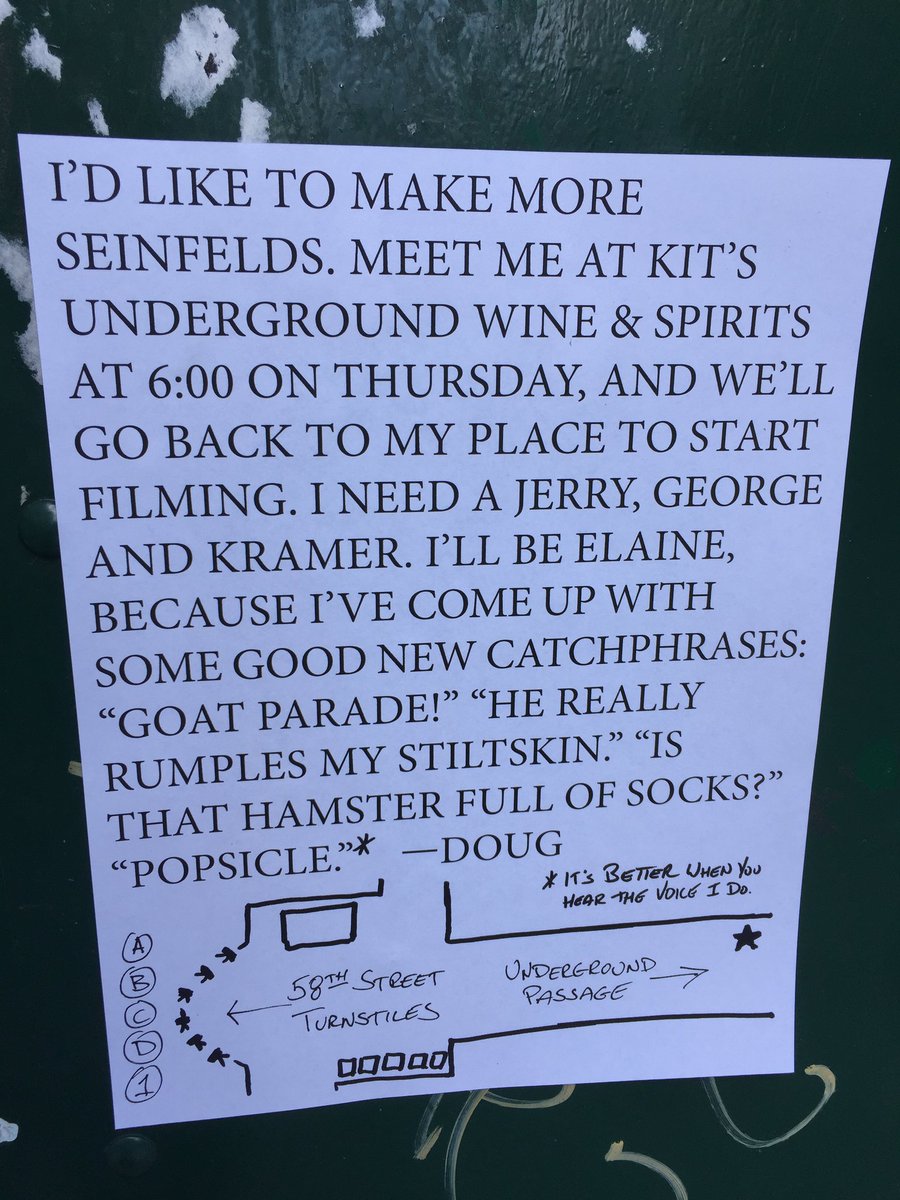 I'D LIKE TO MAKE MORE
SEINFELDS. MEET ME AT KIT'S
UNDERGROUND WINE & SPIRITS
AT 6:00 ON THURSDAY, AND WE'LL
GO BACK TO MY PLACE TO START
FILMING. I NEED A JERRY, GEORGE
AND KRAMER. I'LL BE ELAINE,
BECAUSE I'VE COME UP WITH
SOME GOOD NEW CATCHPHRASES:
“GOAT PARADE!” “HE REALLY
RUMPLES MY STILTSKIN.” “IS
THAT HAMSTER FULL OF SOCKS?”
“POPSICLE.”* —DOUG
* IT'S BETTER WHEN YOU
HEAR THE VOICE I DO.
A
B
C
D
1
58TH STREET
TURNSTILES
UNDERGROUND
PASSAGE